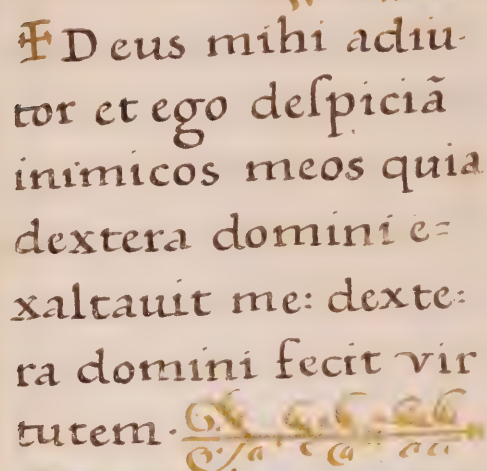 ✠ Deus mihi adiu-
tor et ego deſpiciã
inimicos meos quia
dextera domini e=
xaltauit me: dexte:
ra domini fecit vir
tutem.